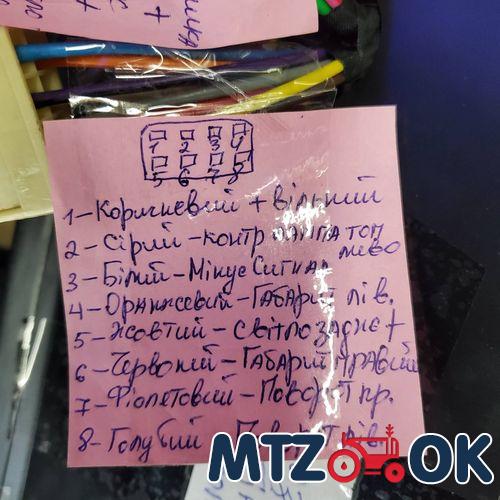 1 2 3 4
5 6 7 8
1 - Коричневий + вільний
2 - Сірий - контр лампа топ
ливо
3 - Білий - Мінус Сигнал
4 - Оранжевий - Габарит лів.
5 - Жовтий - світло заднє +
6 - Червоний - Габарит правий
7 - Фіолетовий - Поворот пр.
8 - Голубий - Поворот лів.
MTZ OK